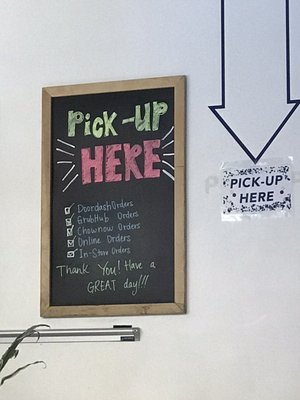 Pick-UP
HERE
DoordashOrders
GrubHub Orders
Chownow Orders
Online Orders
In-Store Orders
Thank You! Have a
GREAT day!!!
PICK-UP
HERE